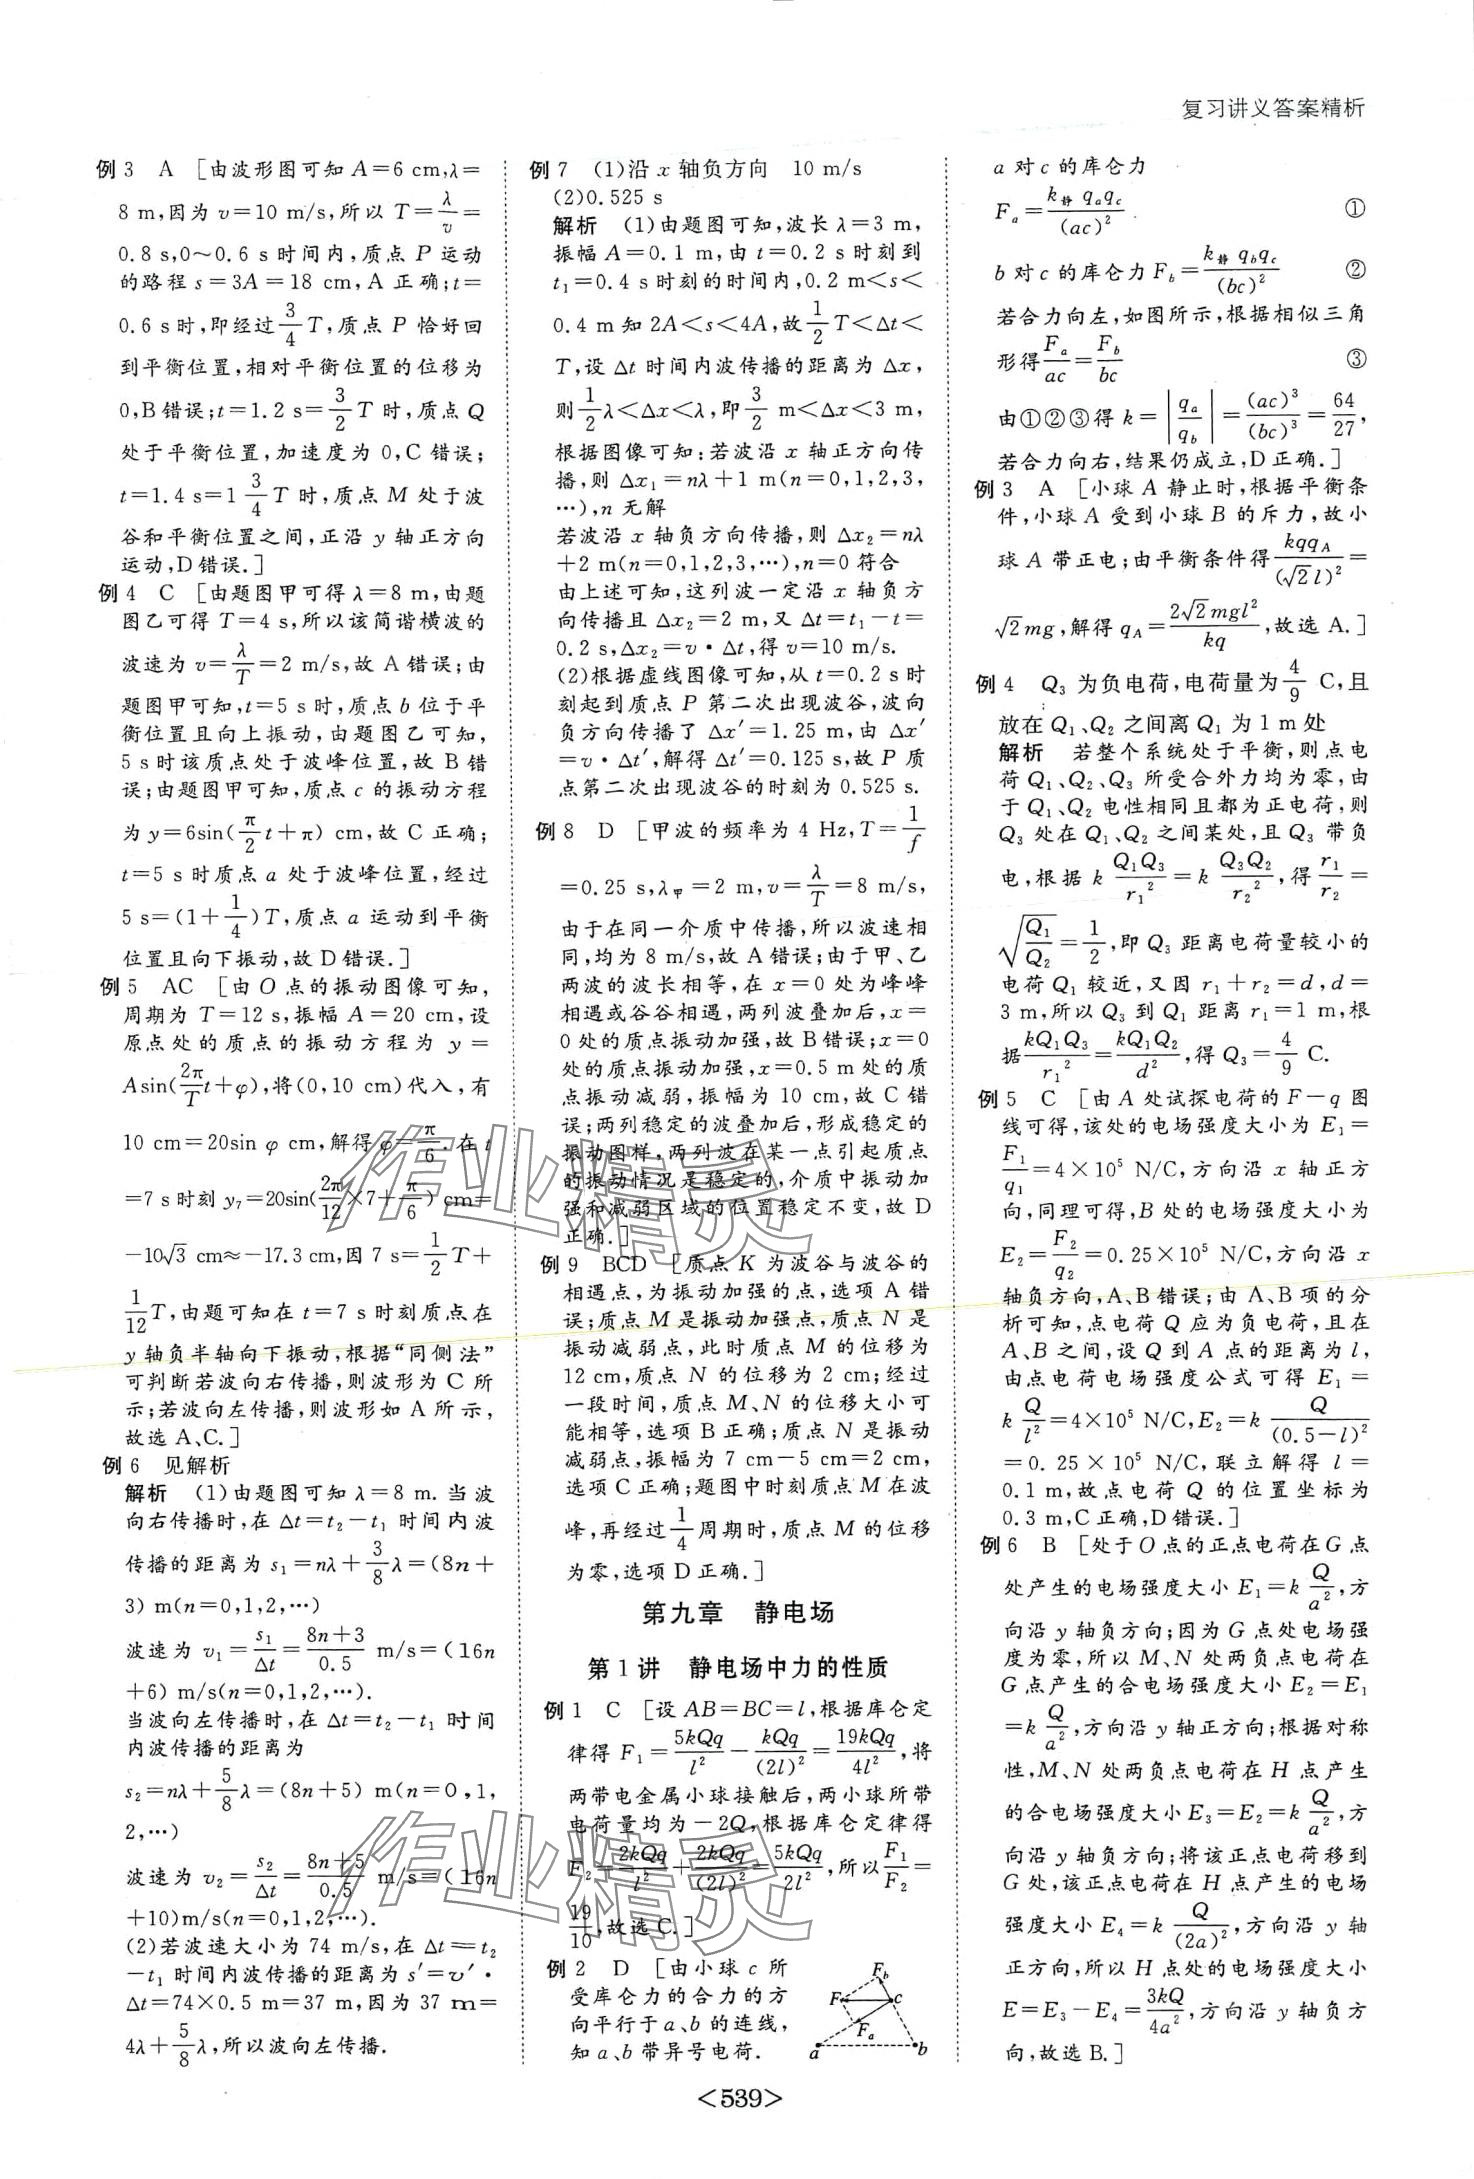 复习讲义答案精析
例3 A [由波形图可知A=6 cm,λ=
8 m,因为v=10 m/s,所以T=λ/v=
0.8 s,0～0.6 s时间内,质点P运动
的路程s=3A=18 cm,A正确;t=
0.6 s时,即经过3/4T,质点P恰好回
到平衡位置,相对平衡位置的位移为
0,B错误;t=1.2 s=3/2T时,质点Q
处于平衡位置,加速度为0,C错误;
t=1.4 s=1 3/4 T时,质点M处于波
谷和平衡位置之间,正沿y轴正方向
运动,D错误.]
例4 C [由题图甲可得λ=8 m,由题
图乙可得T=4 s,所以该简谐横波的
波速为v=λ/T=2 m/s,故A错误;由
题图甲可知,t=5 s时,质点b位于平
衡位置且向上振动,由题图乙可知,
5 s时该质点处于波峰位置,故B错
误;由题图甲可知,质点c的振动方程
为y=6sin(π/2 t+π) cm,故C正确;
t=5 s时质点a处于波峰位置,经过
5 s=(1+1/4)T,质点a运动到平衡
位置且向下振动,故D错误.]
例5 AC [由O点的振动图像可知,
周期为T=12 s,振幅A=20 cm,设
原点处的质点的振动方程为y=
Asin(2π/T t+φ),将(0,10 cm)代入,有
10 cm=20sin φ cm,解得φ=π/6.在t
=7 s时刻y₇=20sin(2π/12×7+π/6) cm=
-10√3 cm≈-17.3 cm,因7 s=1/2T+
1/12T,由题可知在t=7 s时刻质点在
y轴负半轴向下振动,根据“同侧法”
可判断若波向右传播,则波形为C所
示;若波向左传播,则波形如A所示,
故选A、C.]
例6 见解析
解析 (1)由题图可知λ=8 m.当波
向右传播时,在Δt=t₂-t₁时间内波
传播的距离为s₁=nλ+3/8λ=(8n+
3) m(n=0,1,2,…)
波速为v₁=s₁/Δt=(8n+3)/0.5 m/s=(16n
+6) m/s(n=0,1,2,…).
当波向左传播时,在Δt=t₂-t₁时间
内波传播的距离为
s₂=nλ+5/8λ=(8n+5) m(n=0,1,
2,…)
波速为v₂=s₂/Δt=(8n+5)/0.5 m/s=(16n
+10)m/s(n=0,1,2,…).
(2)若波速大小为74 m/s,在Δt=t₂
-t₁时间内波传播的距离为s′=v′·
Δt=74×0.5 m=37 m,因为37 m=
4λ+5/8λ,所以波向左传播.
例7 (1)沿x轴负方向 10 m/s
(2)0.525 s
解析 (1)由题图可知,波长λ=3 m,
振幅A=0.1 m,由t=0.2 s时刻到
t₁=0.4 s时刻的时间内,0.2 m<s<
0.4 m知2A<s<4A,故1/2T<Δt<
T,设Δt时间内波传播的距离为Δx,
则1/2λ<Δx<λ,即3/2 m<Δx<3 m,
根据图像可知:若波沿x轴正方向传
播,则Δx₁=nλ+1 m(n=0,1,2,3,
…),n无解
若波沿x轴负方向传播,则Δx₂=nλ
+2 m(n=0,1,2,3,…),n=0符合
由上述可知,这列波一定沿x轴负方
向传播且Δx₂=2 m,又Δt=t₁-t=
0.2 s,Δx₂=v·Δt,得v=10 m/s.
(2)根据虚线图像可知,从t=0.2 s时
刻起到质点P第二次出现波谷,波向
负方向传播了Δx′=1.25 m,由Δx′
=v·Δt′,解得Δt′=0.125 s,故P质
点第二次出现波谷的时刻为0.525 s.
例8 D [甲波的频率为4 Hz,T=1/f
=0.25 s,λ甲=2 m,v=λ/T=8 m/s,
由于在同一介质中传播,所以波速相
同,均为8 m/s,故A错误;由于甲、乙
两波的波长相等,在x=0处为峰峰
相遇或谷谷相遇,两列波叠加后,x=
0处的质点振动加强,故B错误;x=0
处的质点振动加强,x=0.5 m处的质
点振动减弱,振幅为10 cm,故C错
误;两列稳定的波叠加后,形成稳定的
振动图样,两列波在某一点引起质点
的振动情况是稳定的,介质中振动加
强和减弱区域的位置稳定不变,故D
正确.]
例9 BCD [质点K为波谷与波谷的
相遇点,为振动加强的点,选项A错
误;质点M是振动加强点,质点N是
振动减弱点,此时质点M的位移为
12 cm,质点N的位移为2 cm;经过
一段时间,质点M、N的位移大小可
能相等,选项B正确;质点N为振动
减弱点,振幅为7 cm-5 cm=2 cm,
选项C正确;题图中时刻质点M在波
峰,再经过1/4周期时,质点M的位移
为零,选项D正确.]
第九章 静电场
第1讲 静电场中力的性质
例1 C [设AB=BC=l,根据库仑定
律得F₁=5kQq/l²-kQq/(2l)²=19kQq/4l²,将
两带电金属小球接触后,两小球所带
电荷量均为-2Q,根据库仑定律得
F₂=2kQq/l²+2kQq/(2l)²=5kQq/2l²,所以F₁/F₂=
19/10,故选C.]
例2 D [由小球c所
受库仑力的合力的方
向平行于a、b的连线,
知a、b带异号电荷.
F_b
F
c
F_a
a
b
a对c的库仑力
F_a=k静 q_a q_c/(ac)² ①
b对c的库仑力F_b=k静 q_b q_c/(bc)² ②
若合力向左,如图所示,根据相似三角
形得F_a/ac=F_b/bc ③
由①②③得k=|q_a/q_b|=(ac)³/(bc)³=64/27,
若合力向右,结果仍成立,D正确.]
例3 A [小球A静止时,根据平衡条
件,小球A受到小球B的斥力,故小
球A带正电;由平衡条件得kqq_A/(√2 l)²=
√2mg,解得q_A=2√2mgl²/kq,故选A.]
例4 Q₃为负电荷,电荷量为4/9 C,且
放在Q₁、Q₂之间离Q₁为1 m处
解析 若整个系统处于平衡,则点电
荷Q₁、Q₂、Q₃所受合外力均为零,由
于Q₁、Q₂电性相同且都为正电荷,则
Q₃处在Q₁、Q₂之间某处,且Q₃带负
电,根据k Q₁Q₃/r₁²=k Q₃Q₂/r₂²,得r₁/r₂=
√(Q₁/Q₂)=1/2,即Q₃距离电荷量较小的
电荷Q₁较近,又因r₁+r₂=d,d=
3 m,所以Q₃到Q₁距离r₁=1 m,根
据kQ₁Q₃/r₁²=kQ₁Q₂/d²,得Q₃=4/9 C.
例5 C [由A处试探电荷的F-q图
线可得,该处的电场强度大小为E₁=
F₁/q₁=4×10⁵ N/C,方向沿x轴正方
向,同理可得,B处的电场强度大小为
E₂=F₂/q₂=0.25×10⁵ N/C,方向沿x
轴负方向,A、B错误;由A、B项的分
析可知,点电荷Q应为负电荷,且在
A、B之间,设Q到A点的距离为l,
由点电荷电场强度公式可得E₁=
k Q/l²=4×10⁵ N/C,E₂=k Q/(0.5-l)²
=0.25×10⁵ N/C,联立解得l=
0.1 m,故点电荷Q的位置坐标为
0.3 m,C正确,D错误.]
例6 B [处于O点的正点电荷在G点
处产生的电场强度大小E₁=k Q/a²,方
向沿y轴负方向;因为G点处电场强
度为零,所以M、N处两负点电荷在
G点产生的合电场强度大小E₂=E₁
=k Q/a²,方向沿y轴正方向;根据对称
性,M、N处两负点电荷在H点产生
的合电场强度大小E₃=E₂=k Q/a²,方
向沿y轴负方向;将该正点电荷移到
G处,该正点电荷在H点产生的电场
强度大小E₄=k Q/(2a)²,方向沿y轴
正方向,所以H点处的电场强度大小
E=E₃-E₄=3kQ/4a²,方向沿y轴负方
向,故选B.]
作业精灵
作业精灵
<539>